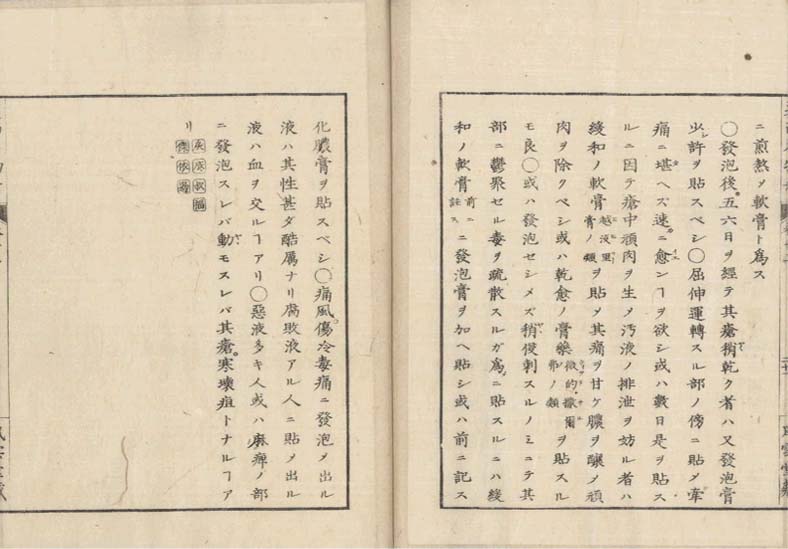 ニ煎熬メ軟膏ト爲ス
○發泡後五六日ヲ經テ其瘡稍乾ク者ハ又發泡膏
少許ヲ貼スベシ○屈伸運轉スル部ノ傍ニ貼メ牽
痛ニ堪ヘズ速ニ愈ンヿヲ欲シ或ハ數日是ヲ貼ス
ルニ因テ瘡中頑肉ヲ生メ汚液ノ排泄ヲ妨ル者ハ
緩和ノ軟膏越淚里膏ノ類ヲ貼メ其痛ヲ甘ケ膿ヲ釀メ頑
肉ヲ除クベシ或ハ乾愈ノ膏藥ノ類ヲ貼スル
モ良○或ハ發泡セシメズ稍侵刺スルノミニテ其
部ニ鬱聚セル毒ヲ疏散スルガ爲ニ貼スルニハ緩
和ノ軟膏前ニ註スニ發泡膏ヲ加ヘ貼シ或ハ前ニ記ス
化膿膏ヲ貼スベシ○痛風傷冷毒痛ニ發泡メ出ル
液ハ其性甚ダ酷厲ナリ腐敗液アル人ニ貼メ出ル
液ハ血ヲ交ルヿアリ○惡液多キ人或ハ麻痺ノ部
ニ發泡スレバ動モスレバ其瘡寒壞疽トナルヿア
リ